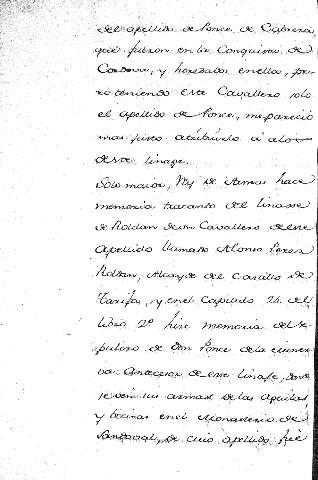 del apellido de Ponce de Cabrera
que fueron en la Conquista de
Cordova, y heredados en ella, pe-
ro teniendo este Cavallero solo
el apellido de Ponce, me parecio
mas justo atribuirlo á alos
de este linage.
de Armas hace
memoria tratando del linage
de Roldan de un Cavallero de este
Apellido llamado Alonso Perez
Roldan, Alcayde del Castillo de
Tarifa, y en el Capitulo 24 del
libro 2º hize memoria del se-
pulcro de Don Ponce de la
Antecesor de este linage, donde
se ven sus armas de las Aguilas
y en el Monasterio de
Sandoval, de cuio apellido fué